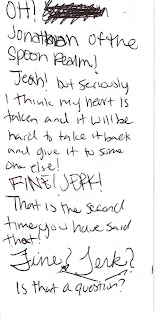 OH!
Jonathan of the
Spoon Realm!
Yeah! but seriously
I think my heart is
taken and it will be
hard to take it back
and give it to some
one else!
FINE! JERK!
That is the second
time you have said
that!
Fine? Jerk?
Is that a question?